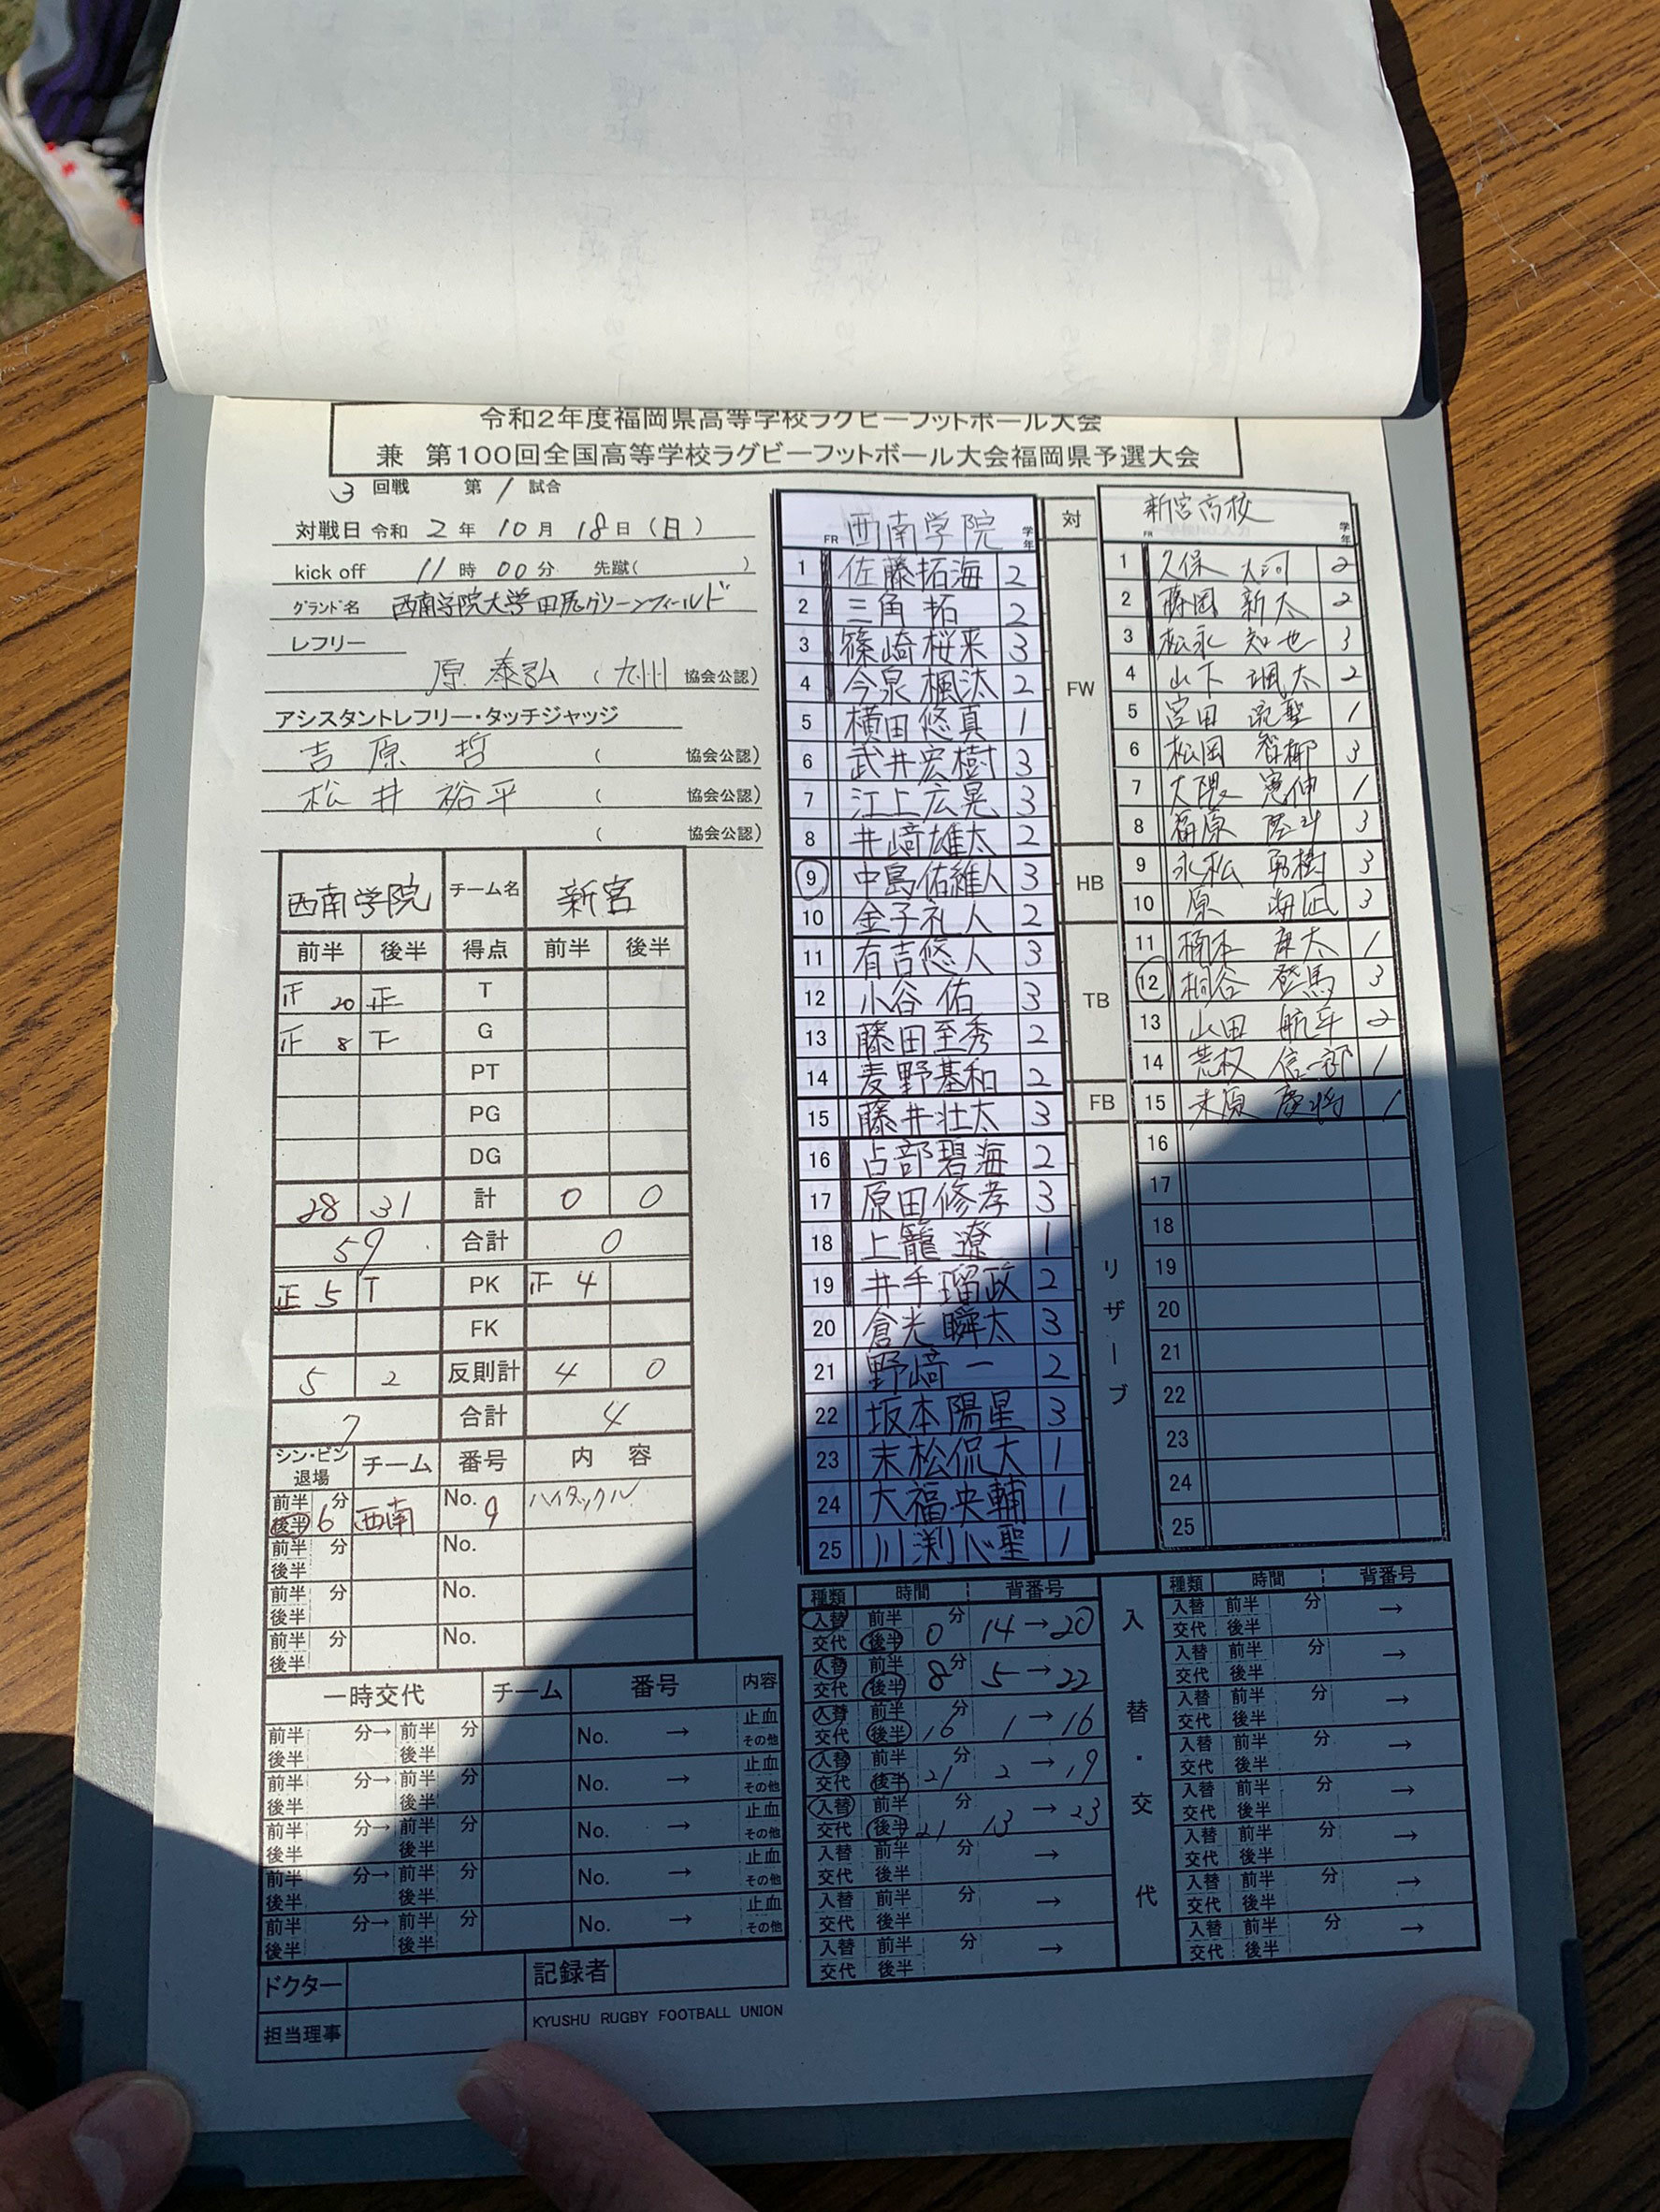 令和2年度福岡県高等学校ラグビーフットボール大会
兼 第100回全国高等学校ラグビーフットボール大会福岡県予選大会
3 回戦 第 1 試合
対戦日 令和 2 年 10 月 18 日 (日)
kick off 11 時 00 分 先蹴( )
グランド名 西南学院大学田尻グリーンフィールド
レフリー
原 泰弘 (九州 協会公認)
アシスタントレフリー・タッチジャッジ
吉原 哲 ( 協会公認)
松井 裕平 ( 協会公認)
( 協会公認)
西南学院 チーム名 新宮
前半 後半 得点 前半 後半
正 20 正 T
正 8 下 G
PT
PG
DG
28 31 計 0 0
59 合計 0
正 5 T PK 正 4
FK
5 2 反則計 4 0
7 合計 4
シン・ビン 退場 チーム 番号 内容
前半 後半 6 分 西南 No. 9 ハイタックル
前半 後半 分 No.
前半 後半 分 No.
前半 後半 分 No.
一時交代 チーム 番号 内容
前半 後半 分→ 前半 後半 分 No. → 止血 その他
前半 後半 分→ 前半 後半 分 No. → 止血 その他
前半 後半 分→ 前半 後半 分 No. → 止血 その他
前半 後半 分→ 前半 後半 分 No. → 止血 その他
前半 後半 分→ 前半 後半 分 No. → 止血 その他
ドクター 記録者
担当理事
KYUSHU RUGBY FOOTBALL UNION
FR 西南学院 学年
1 佐藤拓海 2
2 三角 拓 2
3 篠崎桜来 3
4 今泉楓汰 2
5 横田悠真 1
6 武井宏樹 3
7 江上広晃 3
8 井﨑雄太 2
9 中島佑維人 3
10 金子礼人 2
11 有吉悠人 3
12 小谷 佑 3
13 藤田至秀 2
14 麦野基和 2
15 藤井壮太 3
16 占部碧海 2
17 原田修孝 3
18 上籠 遼 1
19 井手瑠政 2
20 倉光瞬太 3
21 野﨑一 2
22 坂本陽星 3
23 末松侃大 1
24 大福央輔 1
25 川渕心聖 1
対
FW
HB
TB
FB
リザーブ
新宮高校
FR 学年
1 久保 大河 2
2 藤岡 新太 2
3 松永 知也 3
4 山下 颯太 2
5 宮田 1
6 松岡 3
7 大隈 憲伸 1
8 3
9 永松 勇樹 3
10 原 海凪 3
11 楠本 太 1
12 桐谷 登馬 3
13 山田 航平 2
14 荒牧 信一郎 1
15 慶将 1
16
17
18
19
20
21
22
23
24
25
種類 時間 背番号
入替 交代 前半 後半 0 分 14→20
入替 交代 前半 後半 8 分 5→22
入替 交代 前半 後半 16 分 1→16
入替 交代 前半 後半 21 分 2→19
入替 交代 前半 後半 21 分 13→23
入替 交代 前半 後半 分 →
入替 交代 前半 後半 分 →
入替 交代 前半 後半 分 →
入替・交代
種類 時間 背番号
入替 交代 前半 後半 分 →
入替 交代 前半 後半 分 →
入替 交代 前半 後半 分 →
入替 交代 前半 後半 分 →
入替 交代 前半 後半 分 →
入替 交代 前半 後半 分 →
入替 交代 前半 後半 分 →
入替 交代 前半 後半 分 →